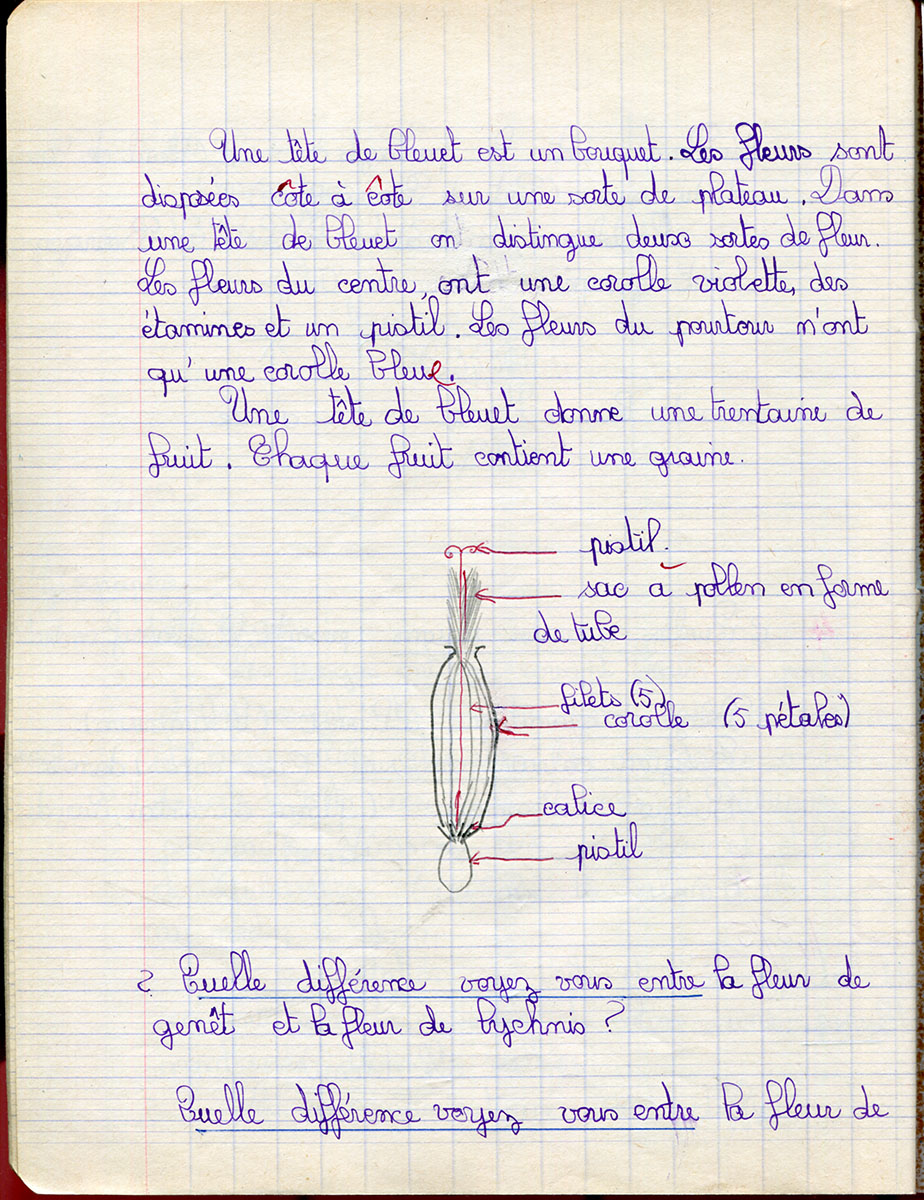 Une tête de bleuet est un bouquet. Les fleurs sont
disposées côte à côte sur une sorte de plateau. Dans
une tête de bleuet on distingue deux sortes de fleur.
Les fleurs du centre, ont une corolle violette, des
étamines et un pistil. Les fleurs du pourtour n'ont
qu'une corolle bleue.
Une tête de bleuet donne une trentaine de
fruit. Chaque fruit contient une graine.
pistil.
sac à pollen en forme
de tube
filets (5)
corolle (5 pétales)
calice
pistil
2 Quelle différence voyez vous entre la fleur de
genêt et la fleur de lychnis ?
Quelle différence voyez vous entre la fleur de